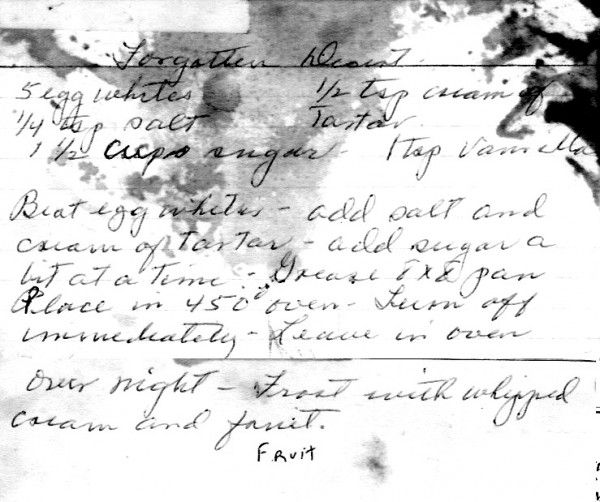 Forgotten Desert
5 egg whites 1/2 tsp cream of
1/4 tsp salt Tartar
1 1/2 cups sugar - 1 tsp Vanella
Beat egg whites - add salt and
cream of tartar - add sugar a
bit at a time - Grease pan
Place in 450° oven - Turn off
immediately - Leave in oven
over night - Frost with whipped
cream and fruit.
Fruit